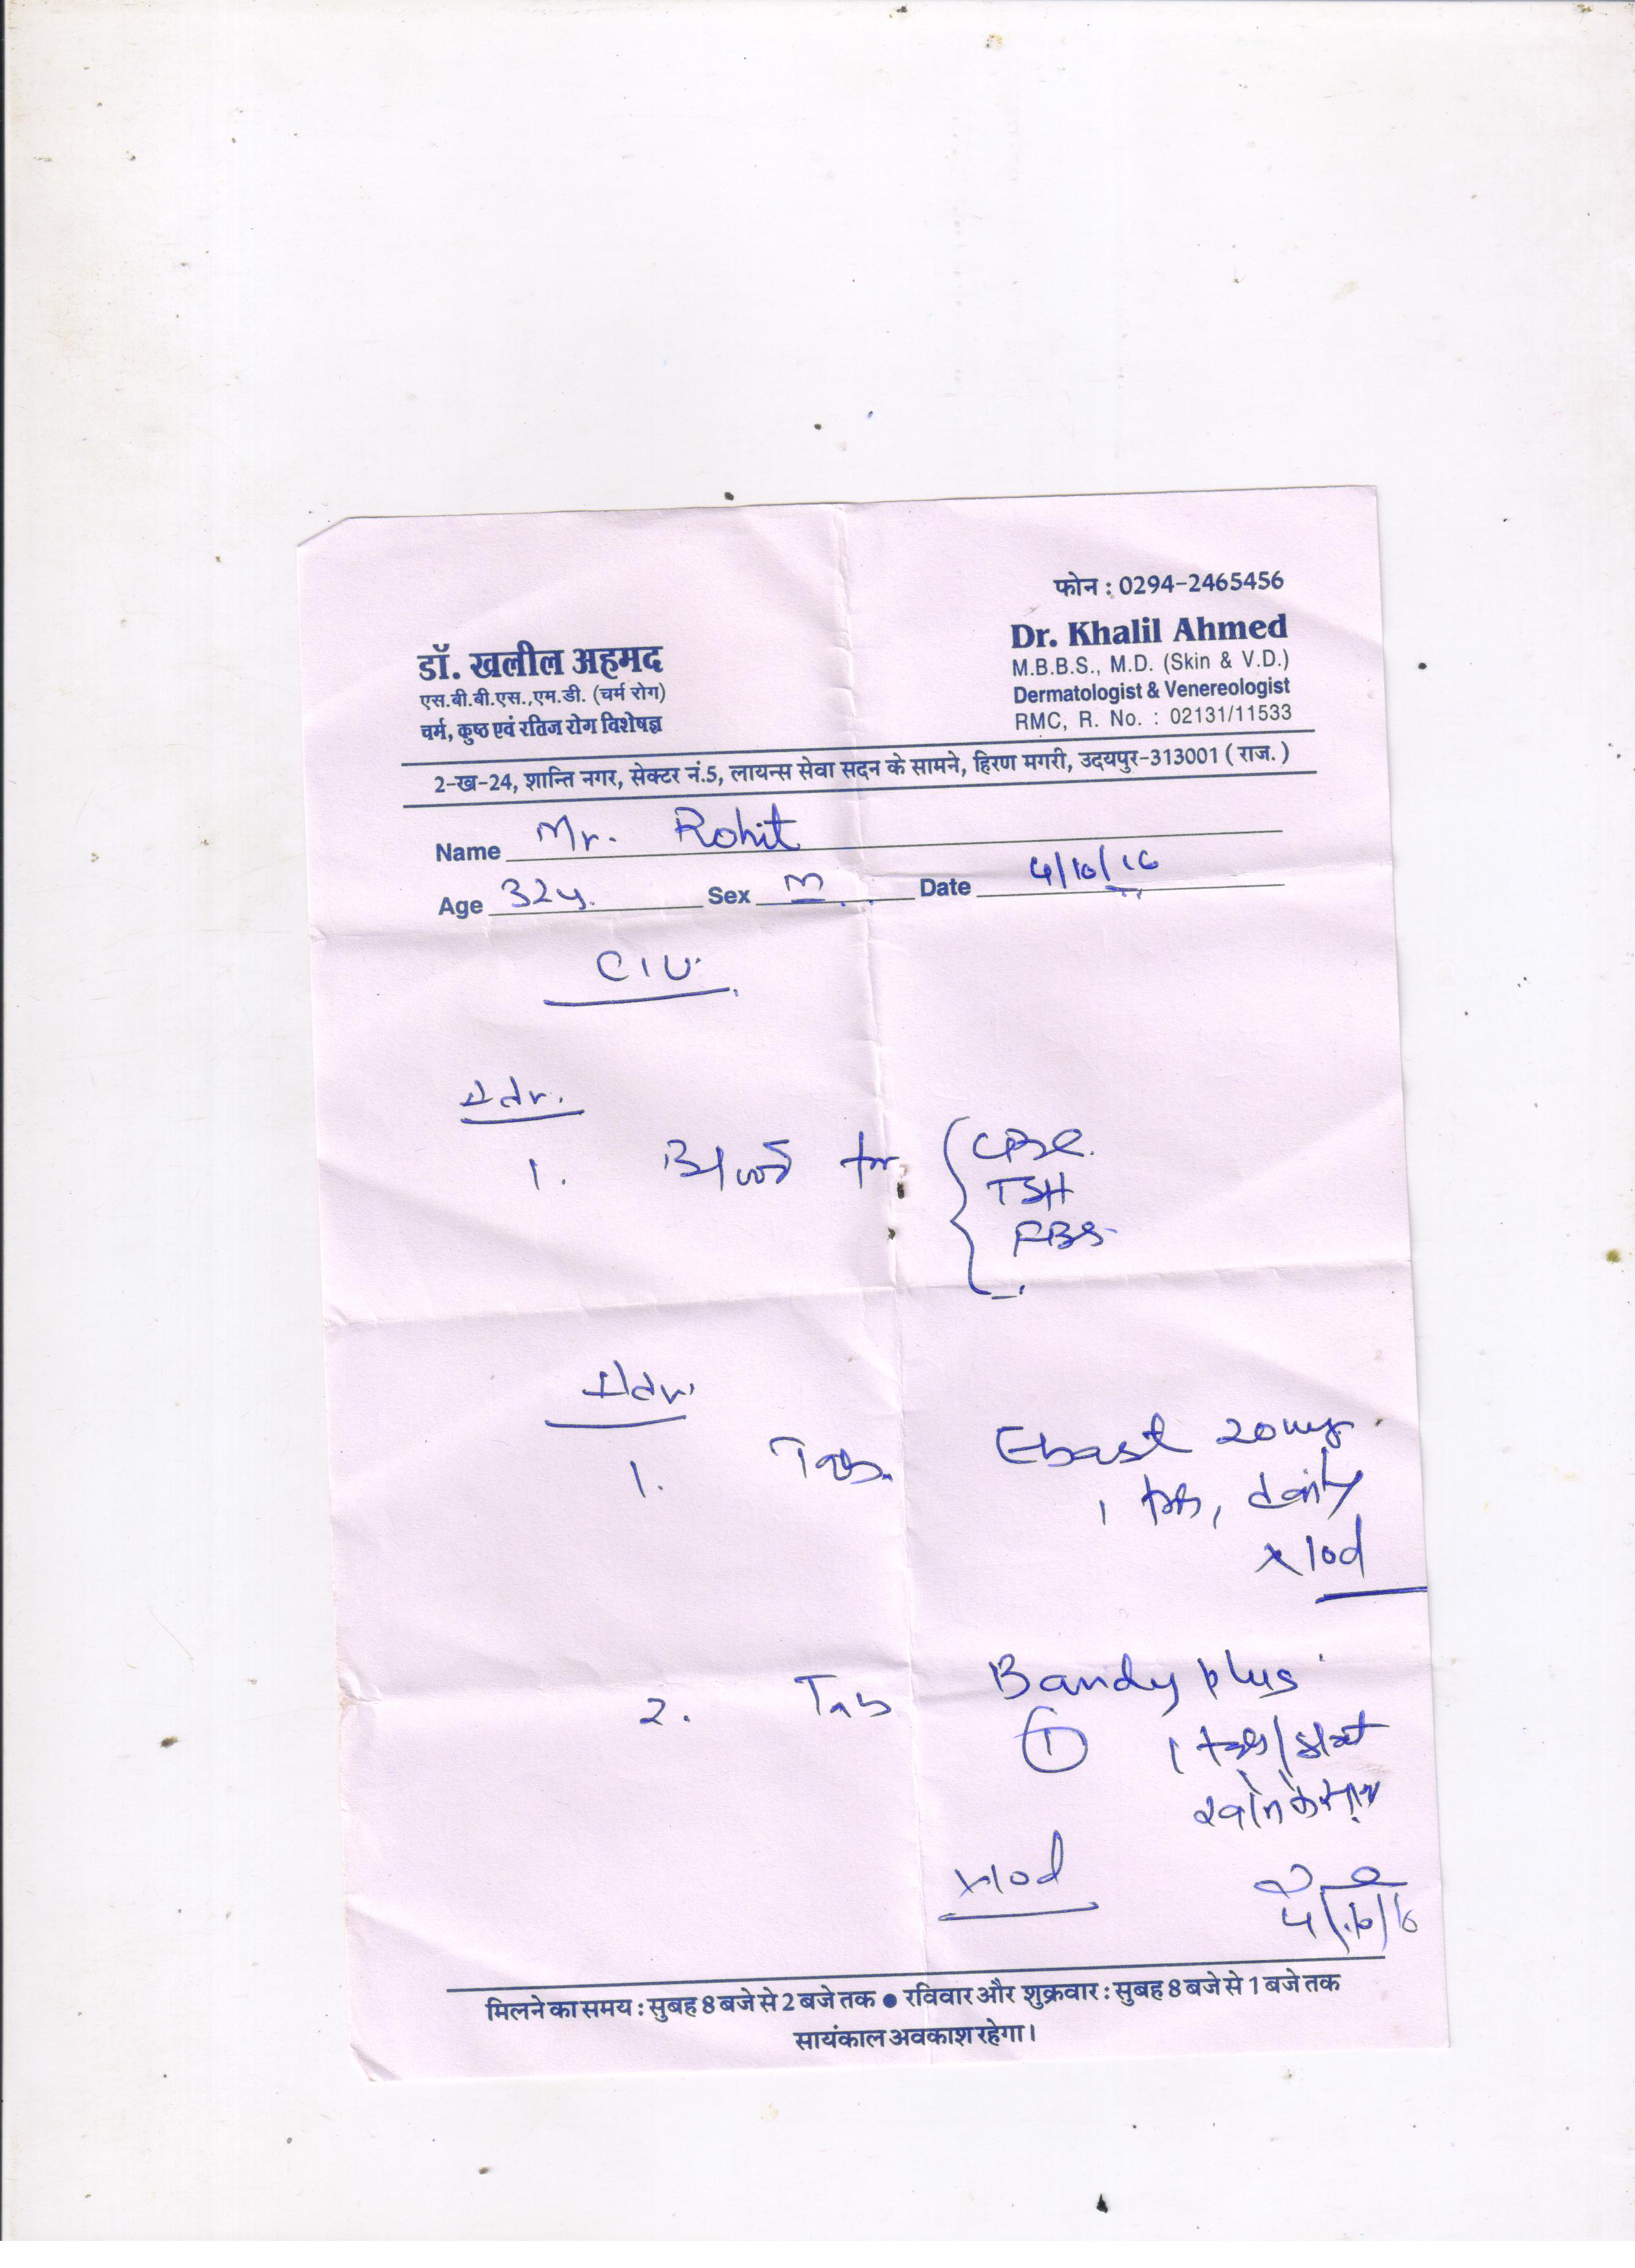 फोन : 0294-2465456
डॉ. खलील अहमद
एस.बी.बी.एस.,एम.डी. (चर्म रोग)
चर्म, कुष्ठ एवं रतिज रोग विशेषज्ञ
Dr. Khalil Ahmed
M.B.B.S., M.D. (Skin & V.D.)
Dermatologist & Venereologist
RMC, R. No. : 02131/11533
2-ख-24, शान्ति नगर, सेक्टर नं.5, लायन्स सेवा सदन के सामने, हिरण मगरी, उदयपुर-313001 ( राज. )
Name Mr. Rohit
Age 32y. Sex M Date 4/10/16
CIU.
Adv.
1. Blood for CBC.
TSH
FBS
Adv.
1. Tab. Ebast 20mg
1 tab, daily
x 10d
2. Tab Bandy plus
1 1 tab/
खाने के साथ
x 10d
4/10/16
मिलने का समय : सुबह 8 बजे से 2 बजे तक ● रविवार और शुक्रवार : सुबह 8 बजे से 1 बजे तक
सायंकाल अवकाश रहेगा।